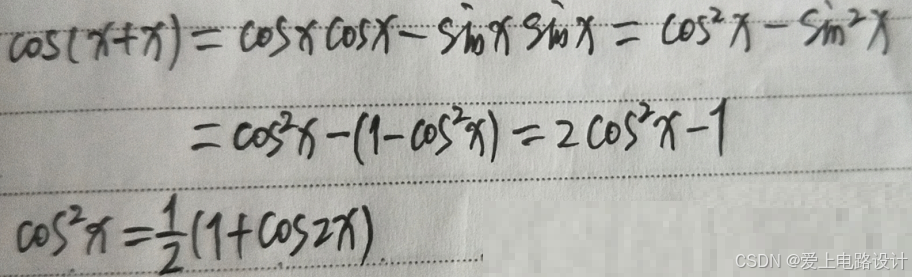 cos(x+x) = cosx cosx - sinx sinx = cos²x - sin²x
= cos²x - (1 - cos²x) = 2cos²x - 1
cos²x = 1/2 (1 + cos2x)
CSDN @爱上电路设计